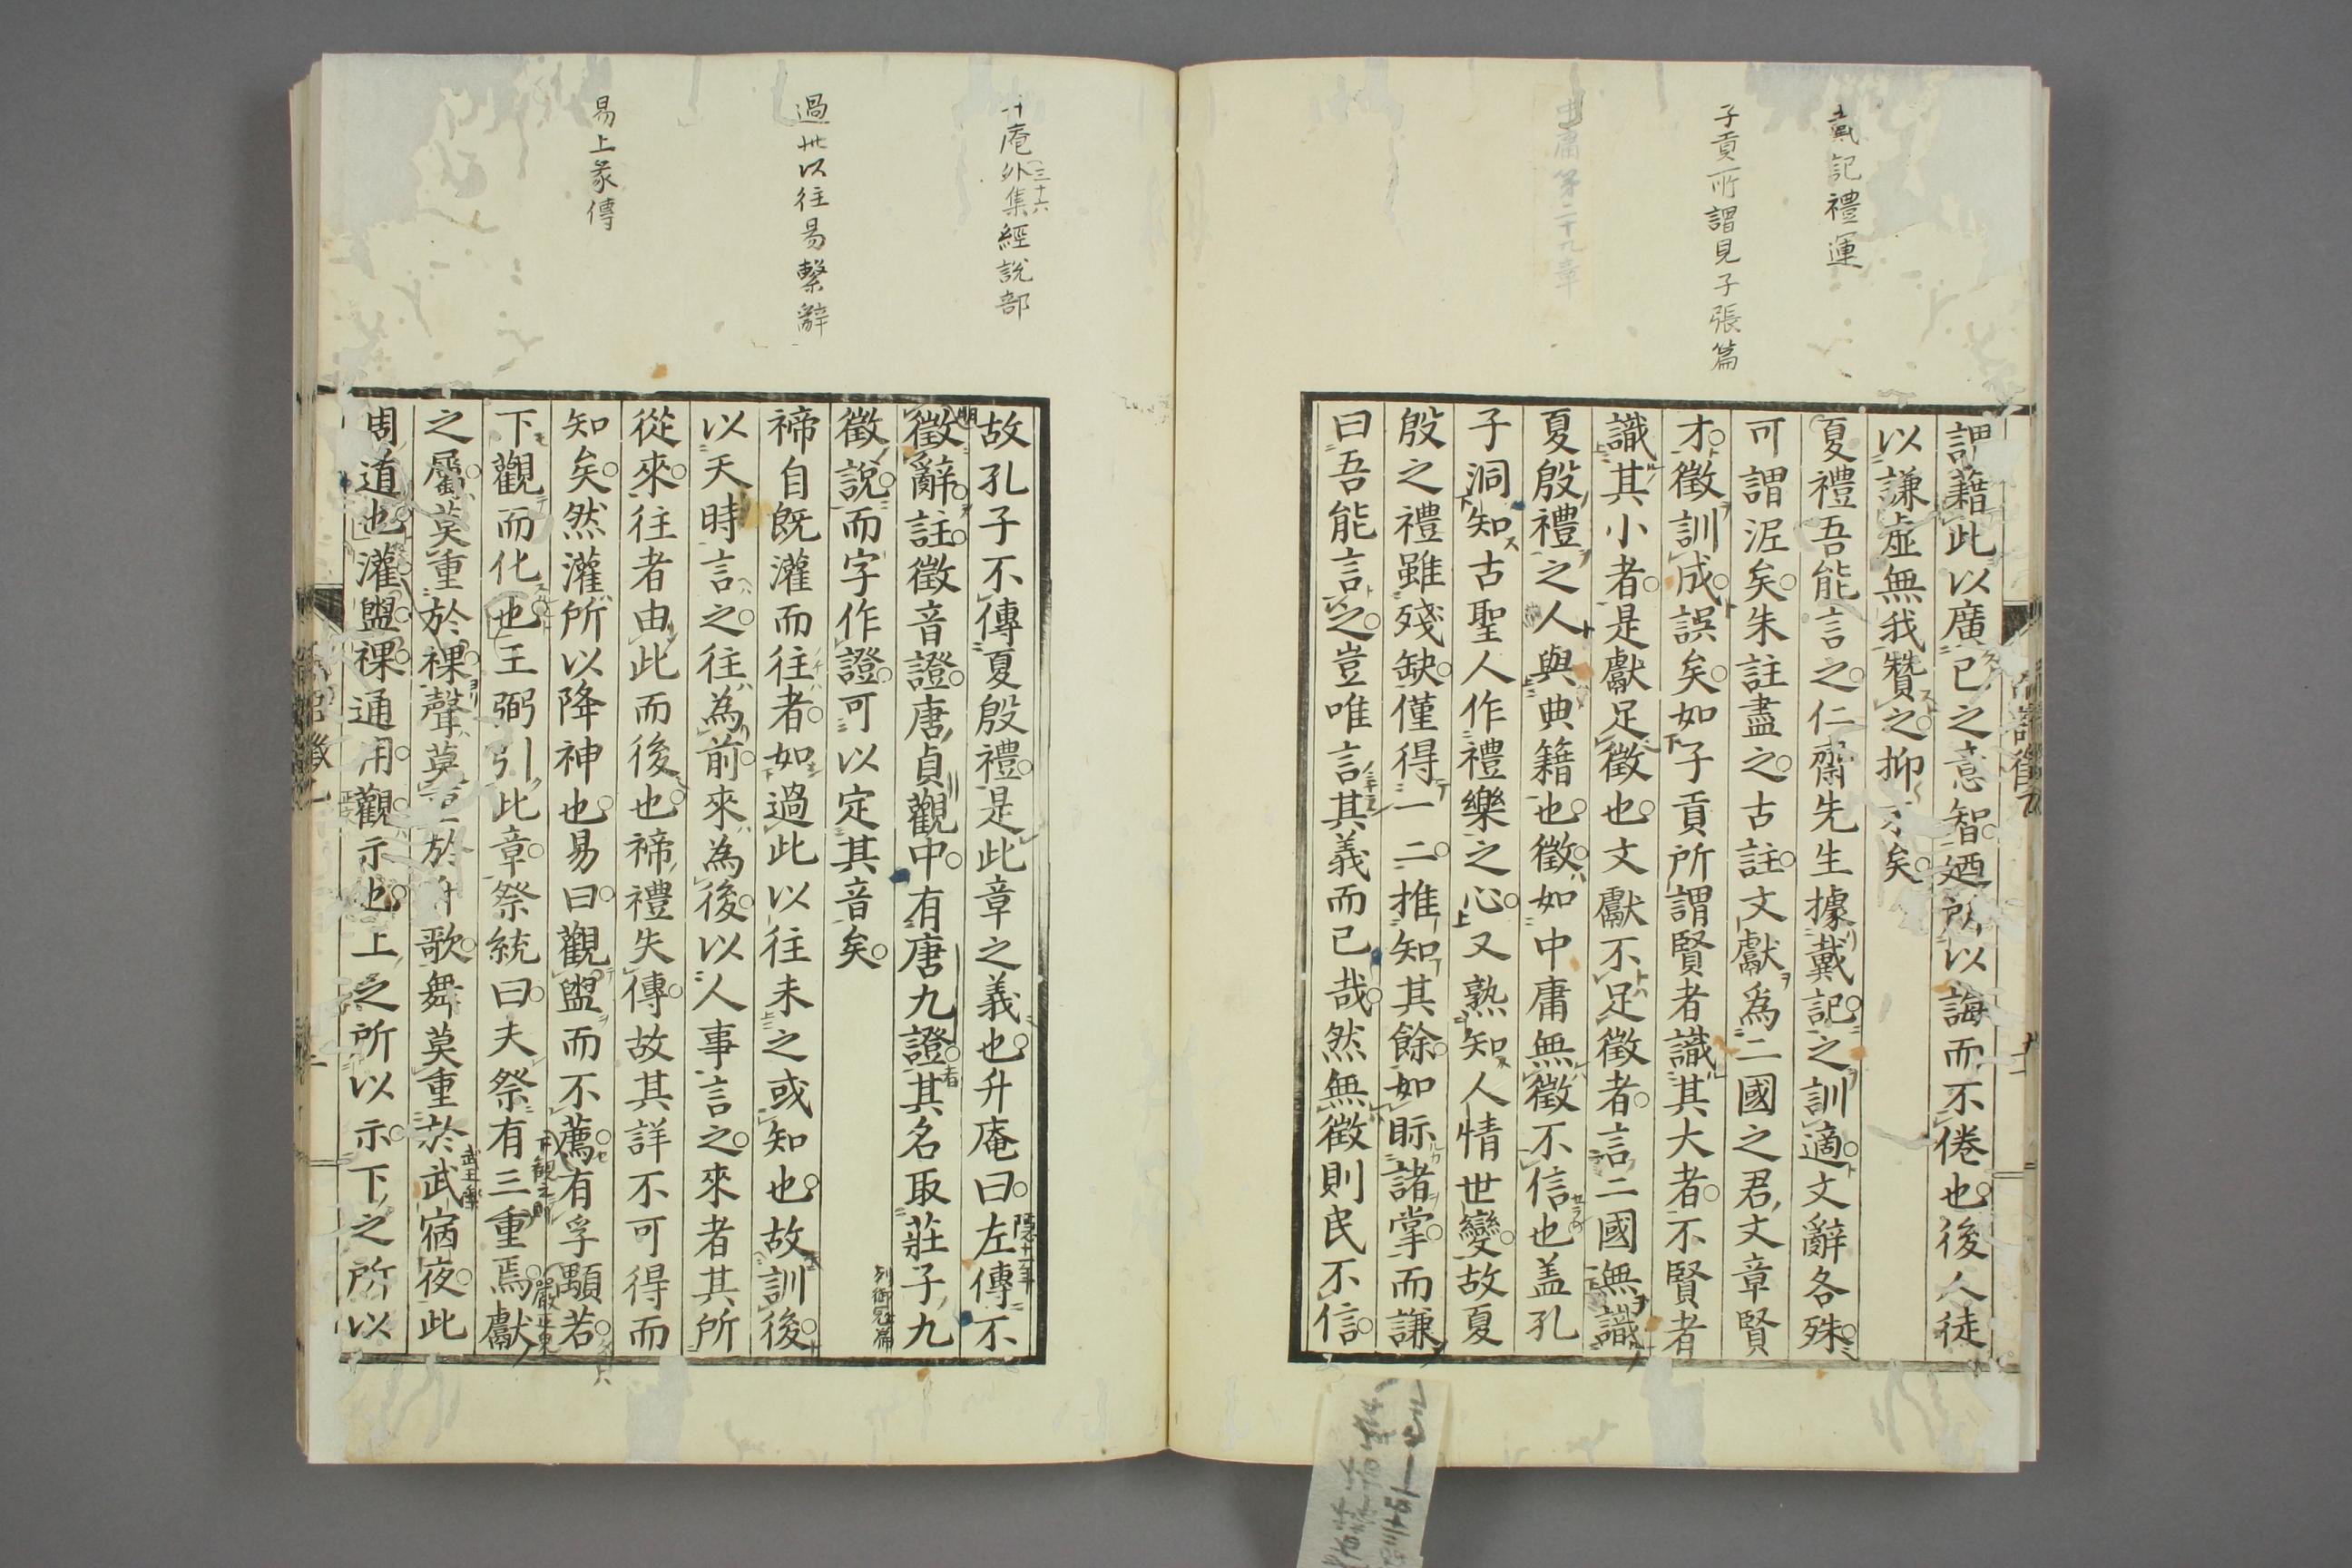 戴記禮運
子貢所謂見子張篇
中庸第二十九章
謂藉此以廣己之意智廼所以誨而不倦也後人徒
以謙虛無我贊之抑 矣
夏禮吾能言之仁齋先生據戴記之訓適文辭各殊
可謂泥矣朱註盡之古註文獻為二國之君文章賢
才徵訓成誤矣如子貢所謂賢者識其大者不賢者
識其小者是獻足徵也文獻不足徵者言二國無識
夏殷禮之人與典籍也徵如中庸無徵不信也盖孔
子洞知古聖人作禮樂之心又熟知人情世變故夏
殷之禮雖殘缺僅得一二推知其餘如眎諸掌而謙
曰吾能言之豈唯言其義而已哉然無徵則民不信
升庵外集三十六經說部
過此以往易繫辭
易上彖傳
故孔子不傳夏殷禮是此章之義也升庵曰左傳不
徵辭註徵音證唐貞觀中有唐九證其名取莊子九
徵說而字作證可以定其音矣
列御冦篇
禘自既灌而往者如過此以往未之或知也故訓後
以天時言之往為前來為後以人事言之來者其所
從來往者由此而後也禘禮失傳故其詳不可得而
知矣然灌所以降神也易曰觀盥而不薦有孚顒若
下觀而化也王弼引此章祭統曰夫祭有三重焉獻
之屬莫重於祼聲莫重於升歌舞莫重於武宿夜此
武王樂
周道也灌盥祼通用觀示也上之所以示下之所以